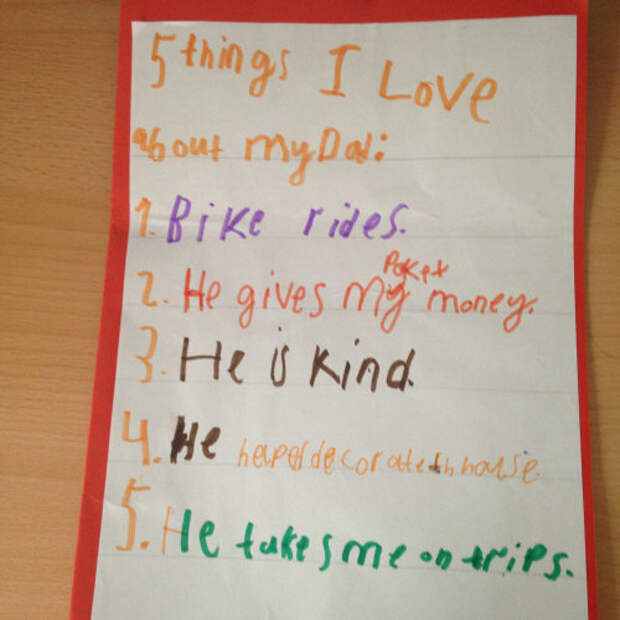 5 things I Love
about my Dad:
1. Bike rides.
Poket
2. He gives my money.
3. He is kind.
4. He helped decorate th house
5. He takes me on trips.